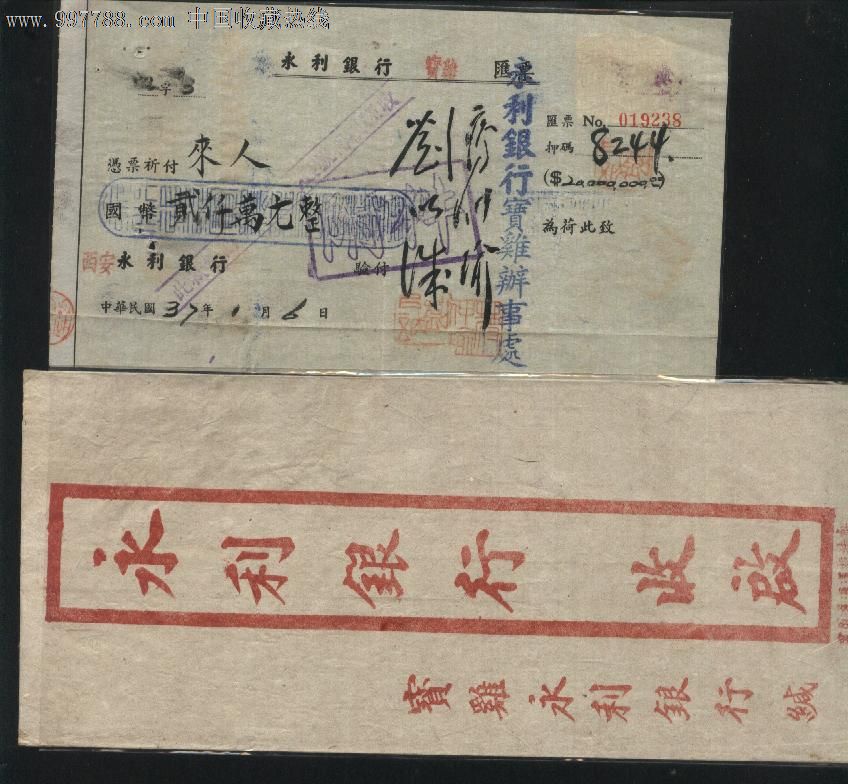 www.997788.com 中国收藏热线
永利銀行 寶雞 匯票
字
匯票 No. 019238
押碼 8244
($20,000,000.00)
憑票祈付 來人
國幣 貳仟萬元整
為荷此致
西安 永利銀行
驗付
中華民國 37 年 1 月 6 日
永利銀行寶雞辦事處
永利銀行 收啟
寶雞永利銀行緘